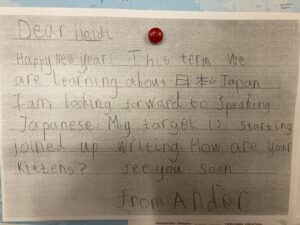 Dear Heidi
Happy New year! This term we
are learning about 日本 Japan
I am looking forward to speaking
Japanese. My target is starting
joined up writing. How are your
kittens? See you soon
from Andor